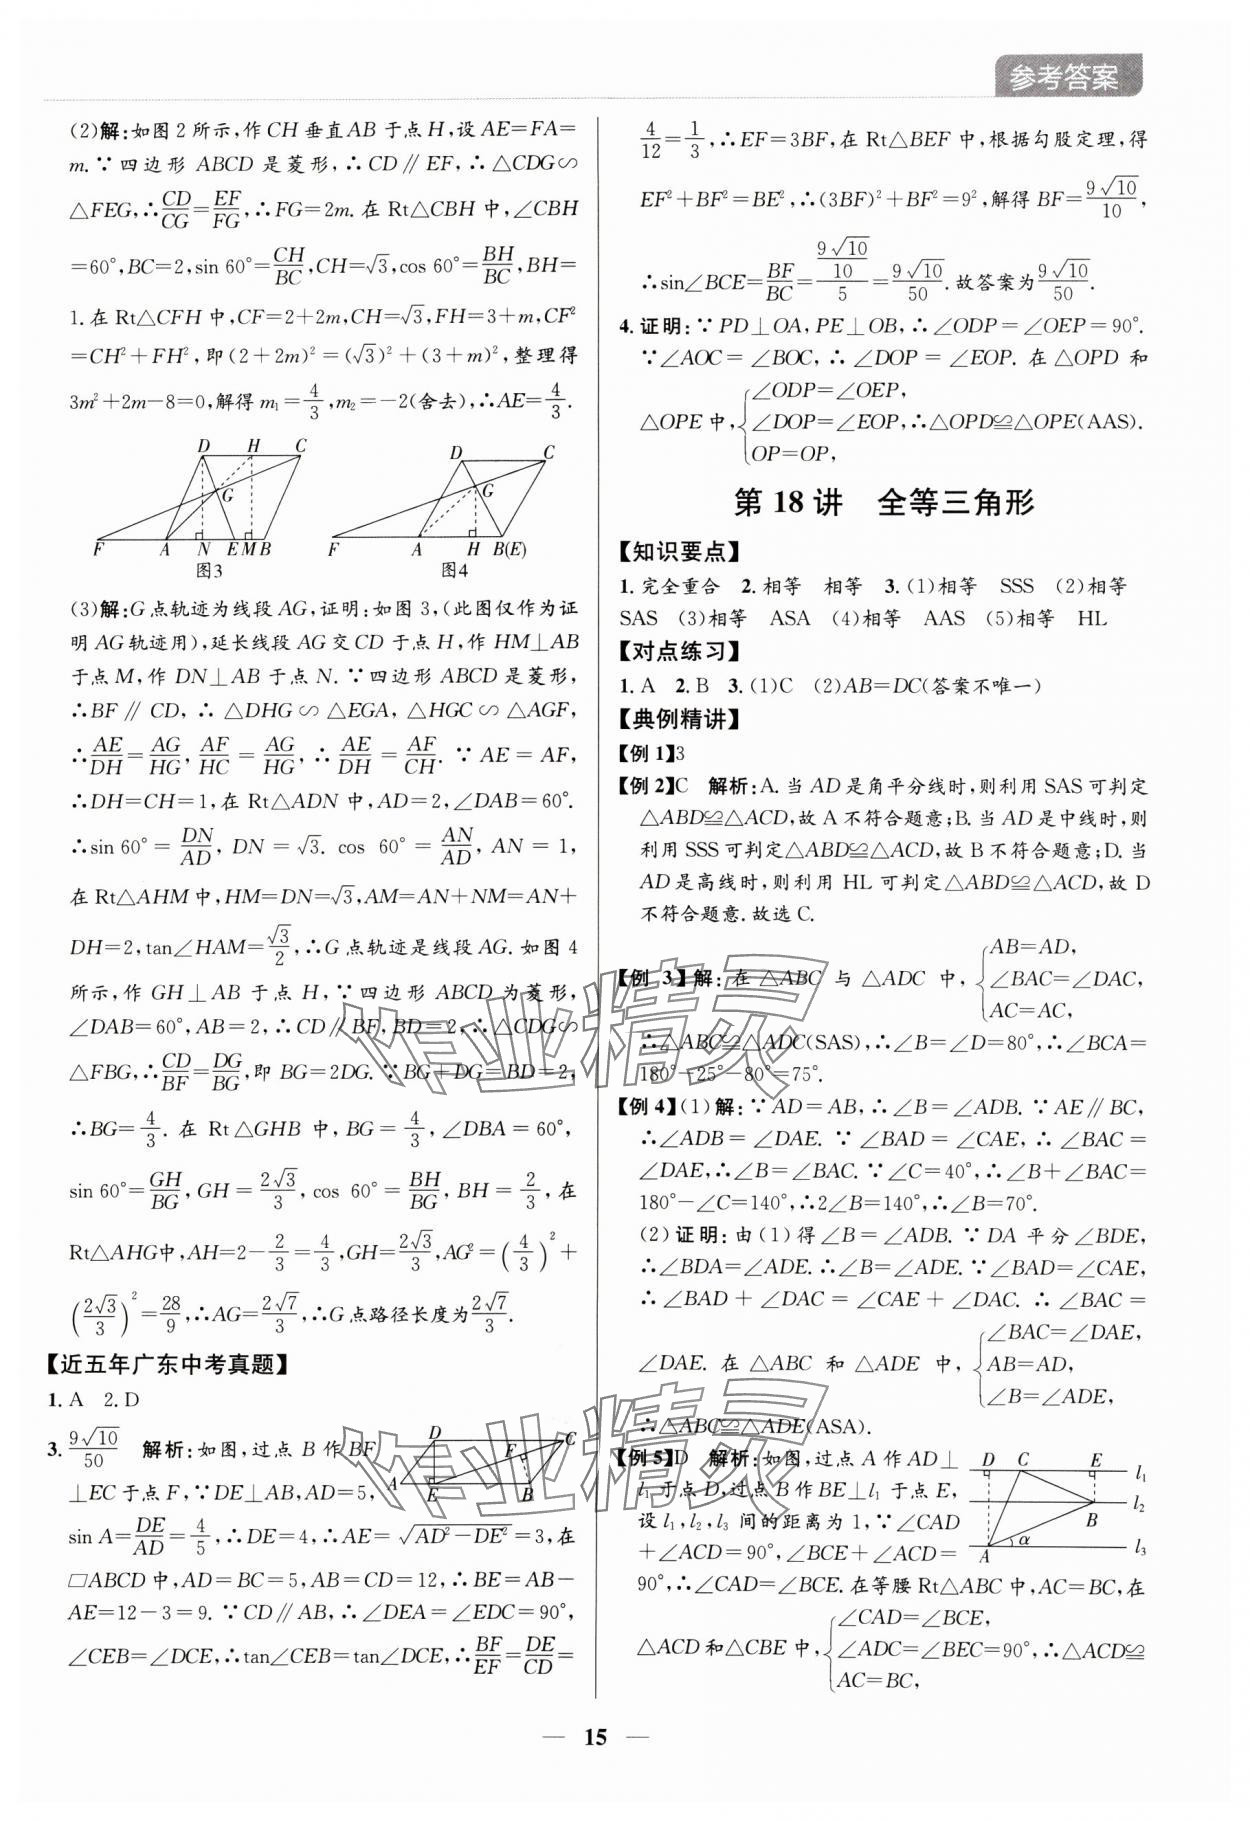 参考答案
(2)解:如图2所示,作CH垂直AB于点H,设AE=FA=
m.∵四边形ABCD是菱形,∴CD∥EF,∴△CDG∽
△FEG,∴CD/CG=EF/FG,∴FG=2m.在Rt△CBH中,∠CBH
=60°,BC=2,sin 60°=CH/BC,CH=√3,cos 60°=BH/BC,BH=
1.在Rt△CFH中,CF=2+2m,CH=√3,FH=3+m,CF²
=CH²+FH²,即(2+2m)²=(√3)²+(3+m)²,整理得
3m²+2m-8=0,解得m₁=4/3,m₂=-2(舍去),∴AE=4/3.
D H C
G
F A N E M B
图3
D C
G
F A H B(E)
图4
(3)解:G点轨迹为线段AG,证明:如图3,(此图仅作为证
明AG轨迹用),延长线段AG交CD于点H,作HM⊥AB
于点M,作DN⊥AB于点N.∵四边形ABCD是菱形,
∴BF∥CD,∴△DHG∽△EGA,△HGC∽△AGF,
∴AE/DH=AG/HG,AF/HC=AG/HG,∴AE/DH=AF/CH.∵AE=AF,
∴DH=CH=1,在Rt△ADN中,AD=2,∠DAB=60°.
∴sin 60°=DN/AD,DN=√3.cos 60°=AN/AD,AN=1,
在Rt△AHM中,HM=DN=√3,AM=AN+NM=AN+
DH=2,tan∠HAM=√3/2,∴G点轨迹是线段AG.如图4
所示,作GH⊥AB于点H,∵四边形ABCD为菱形,
∠DAB=60°,AB=2,∴CD∥BF,BD=2,∴△CDG∽
△FBG,∴CD/BF=DG/BG,即BG=2DG.∵BG+DG=BD=2,
∴BG=4/3.在Rt△GHB中,BG=4/3,∠DBA=60°,
sin 60°=GH/BG,GH=2√3/3,cos 60°=BH/BG,BH=2/3,在
Rt△AHG中,AH=2-2/3=4/3,GH=2√3/3,AG²=(4/3)²+
(2√3/3)²=28/9,∴AG=2√7/3,∴G点路径长度为2√7/3.
【近五年广东中考真题】
1.A 2.D
3.9√10/50 解析:如图,过点B作BF
⊥EC于点F,∵DE⊥AB,AD=5,
D C
F
A E B
sin A=DE/AD=4/5,∴DE=4,∴AE=√(AD²-DE²)=3,在
□ABCD中,AD=BC=5,AB=CD=12,∴BE=AB-
AE=12-3=9.∵CD∥AB,∴∠DEA=∠EDC=90°,
∠CEB=∠DCE,∴tan∠CEB=tan∠DCE,∴BF/EF=DE/CD=
4/12=1/3,∴EF=3BF,在Rt△BEF中,根据勾股定理,得
EF²+BF²=BE²,∴(3BF)²+BF²=9²,解得BF=9√10/10,
∴sin∠BCE=BF/BC=(9√10/10)/5=9√10/50.故答案为9√10/50.
4.证明:∵PD⊥OA,PE⊥OB,∴∠ODP=∠OEP=90°.
∵∠AOC=∠BOC,∴∠DOP=∠EOP.在△OPD和
∠ODP=∠OEP,
△OPE中,{∠DOP=∠EOP,∴△OPD≌△OPE(AAS).
OP=OP,
第18讲 全等三角形
【知识要点】
1.完全重合 2.相等 相等 3.(1)相等 SSS (2)相等
SAS (3)相等 ASA (4)相等 AAS (5)相等 HL
【对点练习】
1.A 2.B 3.(1)C (2)AB=DC(答案不唯一)
【典例精讲】
【例1】3
【例2】C 解析:A.当AD是角平分线时,则利用SAS可判定
△ABD≌△ACD,故A不符合题意;B.当AD是中线时,则
利用SSS可判定△ABD≌△ACD,故B不符合题意;D.当
AD是高线时,则利用HL可判定△ABD≌△ACD,故D
不符合题意.故选C.
AB=AD,
【例3】解:在△ABC与△ADC中,{∠BAC=∠DAC,
AC=AC,
∴△ABC≌△ADC(SAS),∴∠B=∠D=80°,∴∠BCA=
180°-25°-80°=75°.
【例4】(1)解:∵AD=AB,∴∠B=∠ADB.∵AE∥BC,
∴∠ADB=∠DAE.∵∠BAD=∠CAE,∴∠BAC=
∠DAE,∴∠B=∠BAC.∵∠C=40°,∴∠B+∠BAC=
180°-∠C=140°,∴2∠B=140°,∴∠B=70°.
(2)证明:由(1)得∠B=∠ADB.∵DA平分∠BDE,
∴∠BDA=∠ADE.∴∠B=∠ADE.∵∠BAD=∠CAE,
∴∠BAD+∠DAC=∠CAE+∠DAC.∴∠BAC=
∠BAC=∠DAE,
∠DAE.在△ABC和△ADE中,{AB=AD,
∠B=∠ADE,
∴△ABC≌△ADE(ASA).
【例5】D 解析:如图,过点A作AD⊥
l₁于点D,过点B作BE⊥l₁于点E,
设l₁,l₂,l₃间的距离为1,∵∠CAD
+∠ACD=90°,∠BCE+∠ACD=
D C E l₁
l₂
B
A α l₃
90°,∴∠CAD=∠BCE.在等腰Rt△ABC中,AC=BC,在
∠CAD=∠BCE,
△ACD和△CBE中,{∠ADC=∠BEC=90°,∴△ACD≌
AC=BC,
— 15 —
作业精灵
作业精灵